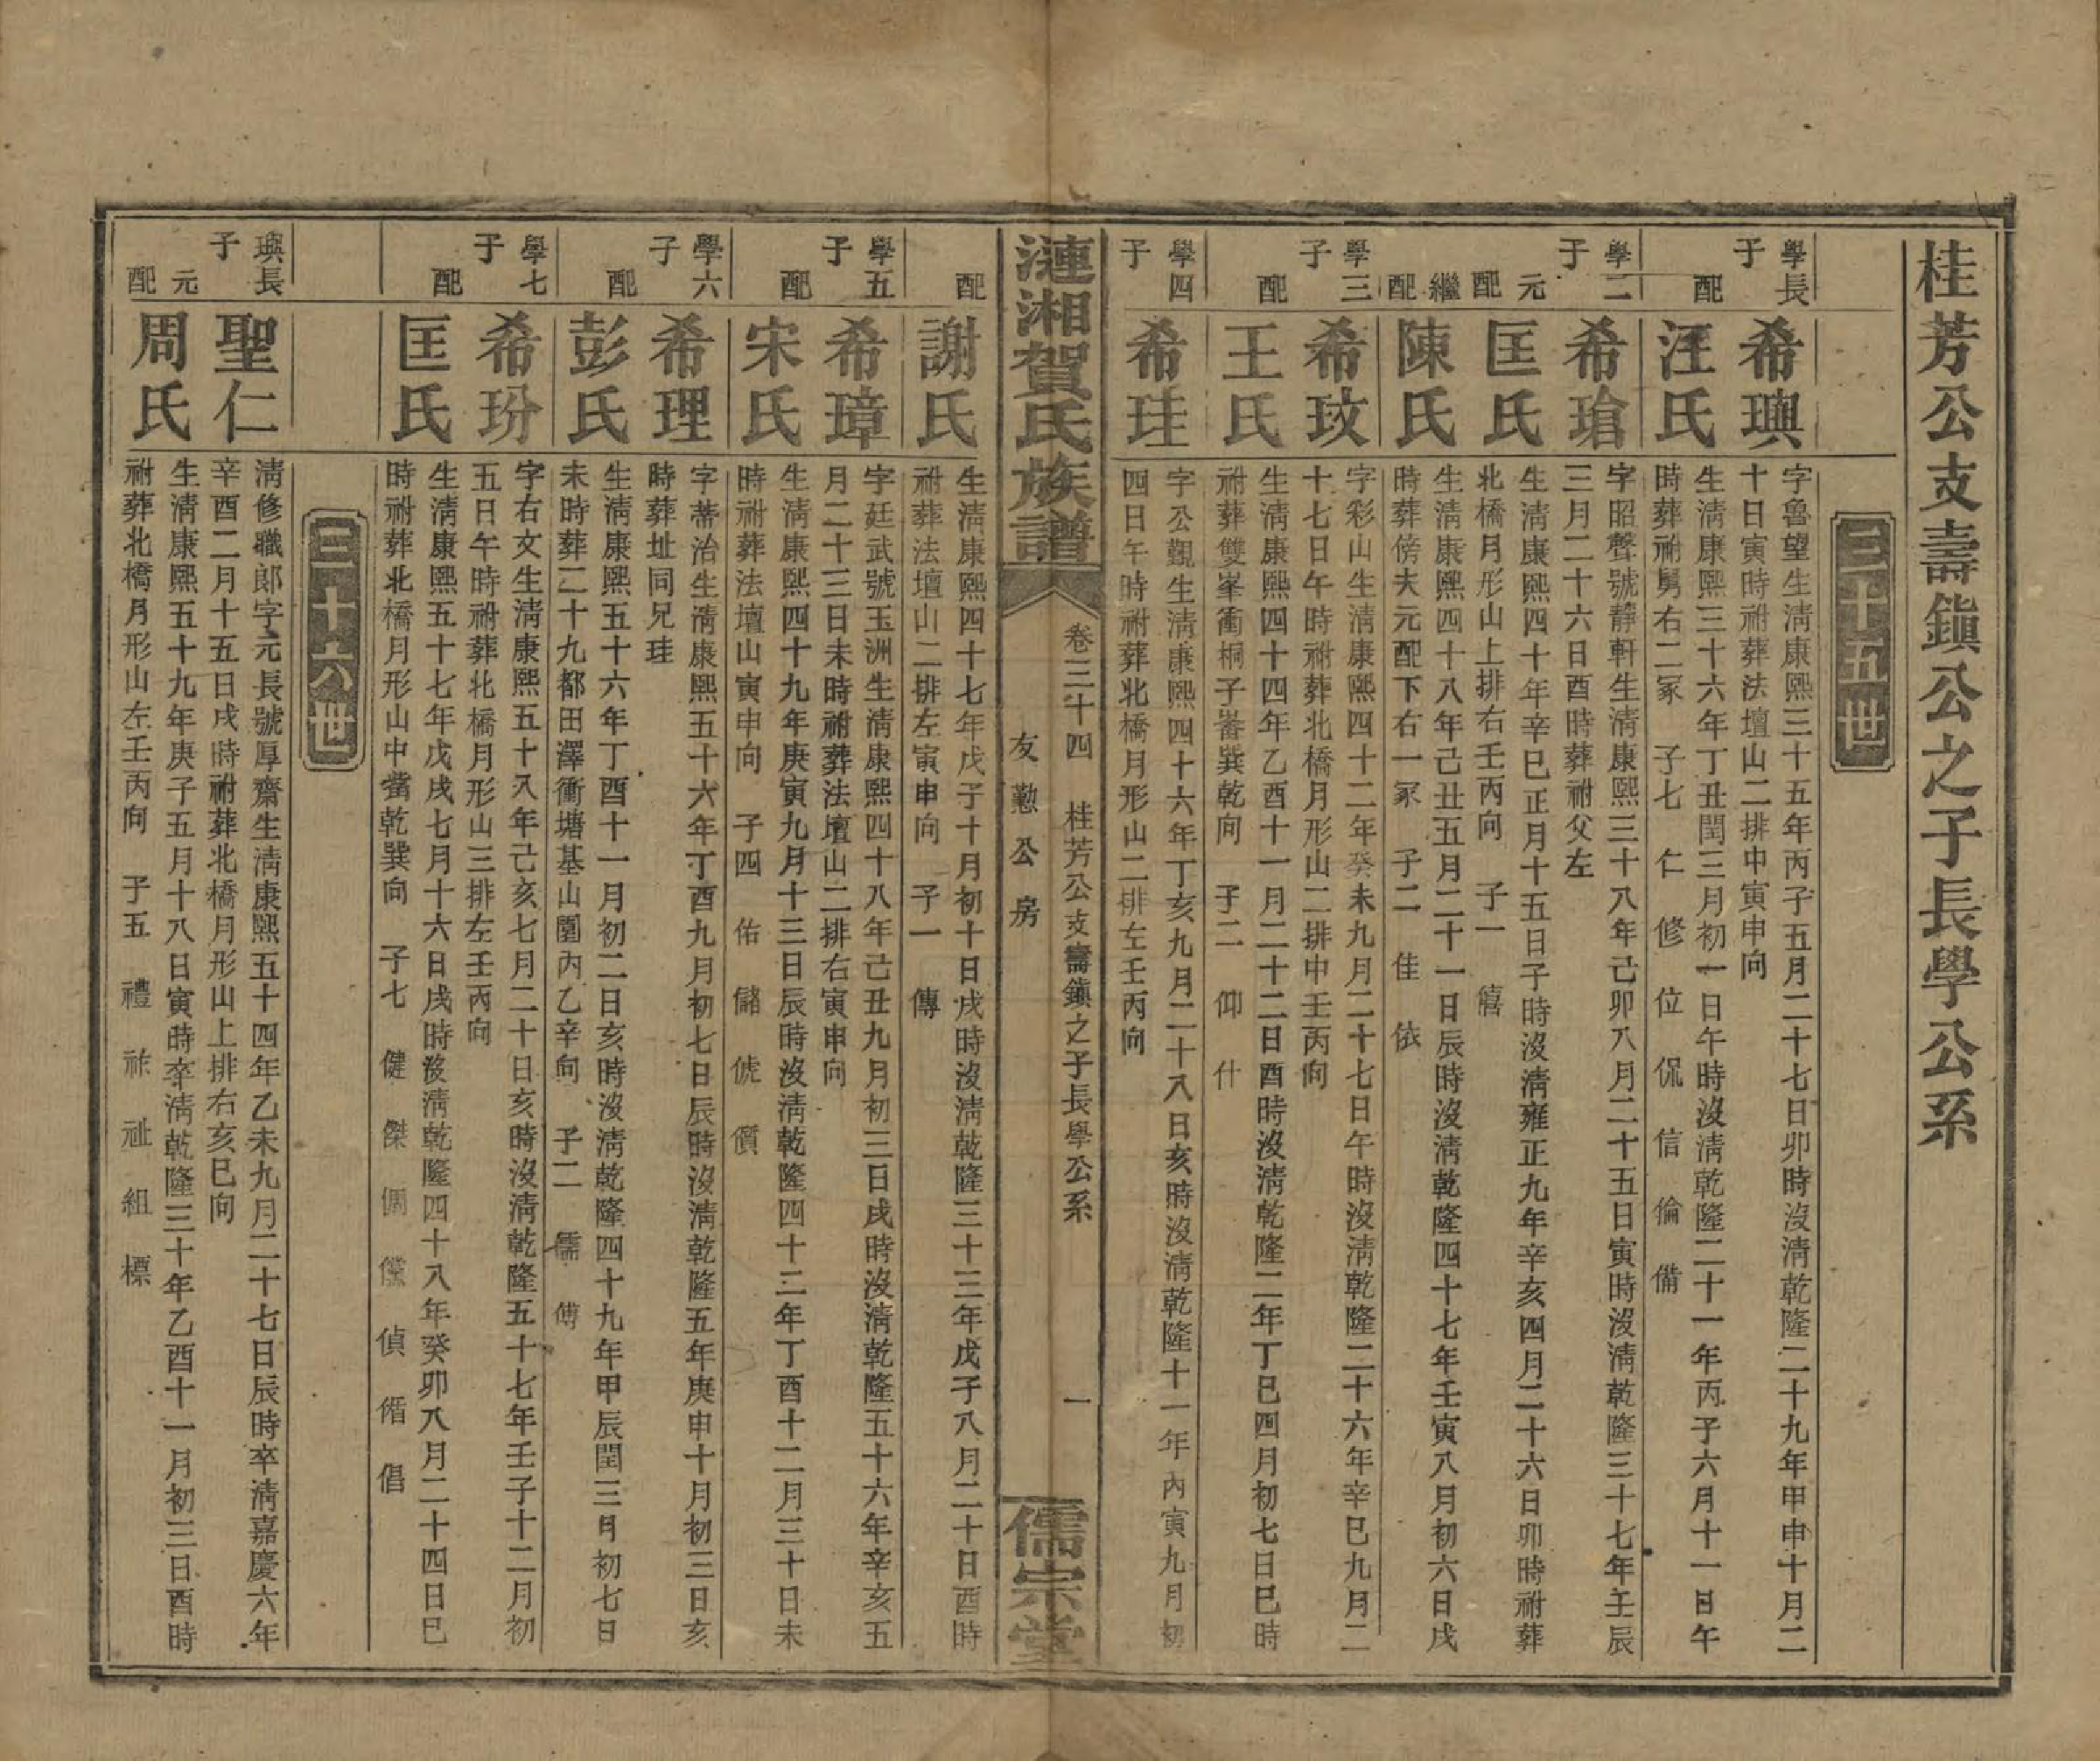 桂芳公支壽鎮公之子長學公系
三十五世
學長子
希璵
字魯望生淸康熙三十五年丙子五月二十七日卯時沒淸乾隆二十九年甲申十月二
十日寅時祔葬法壇山二排中寅申向
配
汪氏
生淸康熙三十六年丁丑閏三月初一日午時沒淸乾隆二十一年丙子六月十一日午
時葬祔舅右二冢 子七 仁 修 位 侃 信 倫 備
學二子
希瑲
字昭聲號靜軒生淸康熙三十八年己卯八月二十五日寅時沒淸乾隆三十七年壬辰
三月二十六日酉時葬祔父左
元配
匡氏
生淸康熙四十年辛巳正月十五日子時沒淸雍正九年辛亥四月二十六日卯時祔葬
北橋月形山上排右壬丙向 子一 僖
繼配
陳氏
生淸康熙四十八年己丑五月二十一日辰時沒淸乾隆四十七年壬寅八月初六日戌
時葬傍夫元配下右一冢 子二 佳 依
學三子
希玟
字彩山生淸康熙四十二年癸未九月二十七日午時沒淸乾隆二十六年辛巳九月二
十七日午時祔葬北橋月形山二排中壬丙向
配
王氏
生淸康熙四十四年乙酉十一月二十二日酉時沒淸乾隆二年丁巳四月初七日巳時
祔葬雙峯衝桐子畨巽乾向 子二 仰 什
學四子
希珪
字公觀生淸康熙四十六年丁亥九月二十八日亥時沒淸乾隆十一年丙寅九月初
四日午時祔葬北橋月形山二排左壬丙向
漣湘賀氏族譜
卷三十四 桂芳公支壽鎮之子長學公系 一
友懃公房
儒宗堂
配
謝氏
生淸康熙四十七年戊子十月初十日戌時沒淸乾隆三十三年戊子八月二十日酉時
祔葬法壇山二排左寅申向 子一 傳
學五子
希璋
字廷武號玉洲生淸康熙四十八年己丑九月初三日戌時沒淸乾隆五十六年辛亥五
月二十三日未時祔葬法壇山二排右寅申向
配
宋氏
生淸康熙四十九年庚寅九月十三日辰時沒淸乾隆四十二年丁酉十二月三十日未
時祔葬法壇山寅申向 子四 佑 儲 俿 償
學六子
希理
字蒂治生淸康熙五十六年丁酉九月初七日辰時沒淸乾隆五年庚申十月初三日亥
時葬址同兄珪
配
彭氏
生淸康熙五十六年丁酉十一月初二日亥時沒淸乾隆四十九年甲辰閏三月初七日
未時葬二十九都田澤衝塘基山圍內乙辛向 子二 儒 傅
學七子
希玢
字右文生淸康熙五十八年己亥七月二十日亥時沒淸乾隆五十七年壬子十二月初
五日午時祔葬北橋月形山三排左壬丙向
配
匡氏
生淸康熙五十七年戊戌七月十六日戌時沒淸乾隆四十八年癸卯八月二十四日巳
時祔葬北橋月形山中嘴乾巽向 子七 健 傑 儻 偵 偱 倡
三十六世
璵長子
聖仁
淸修職郎字元長號厚齋生淸康熙五十四年乙未九月二十七日辰時卒淸嘉慶六年
辛酉二月十五日戌時祔葬北橋月形山上排右亥巳向
元配
周氏
生淸康熙五十九年庚子五月十八日寅時卒淸乾隆三十年乙酉十一月初三日酉時
祔葬北橋月形山左壬丙向 子五 禮 祚 祉 組 標